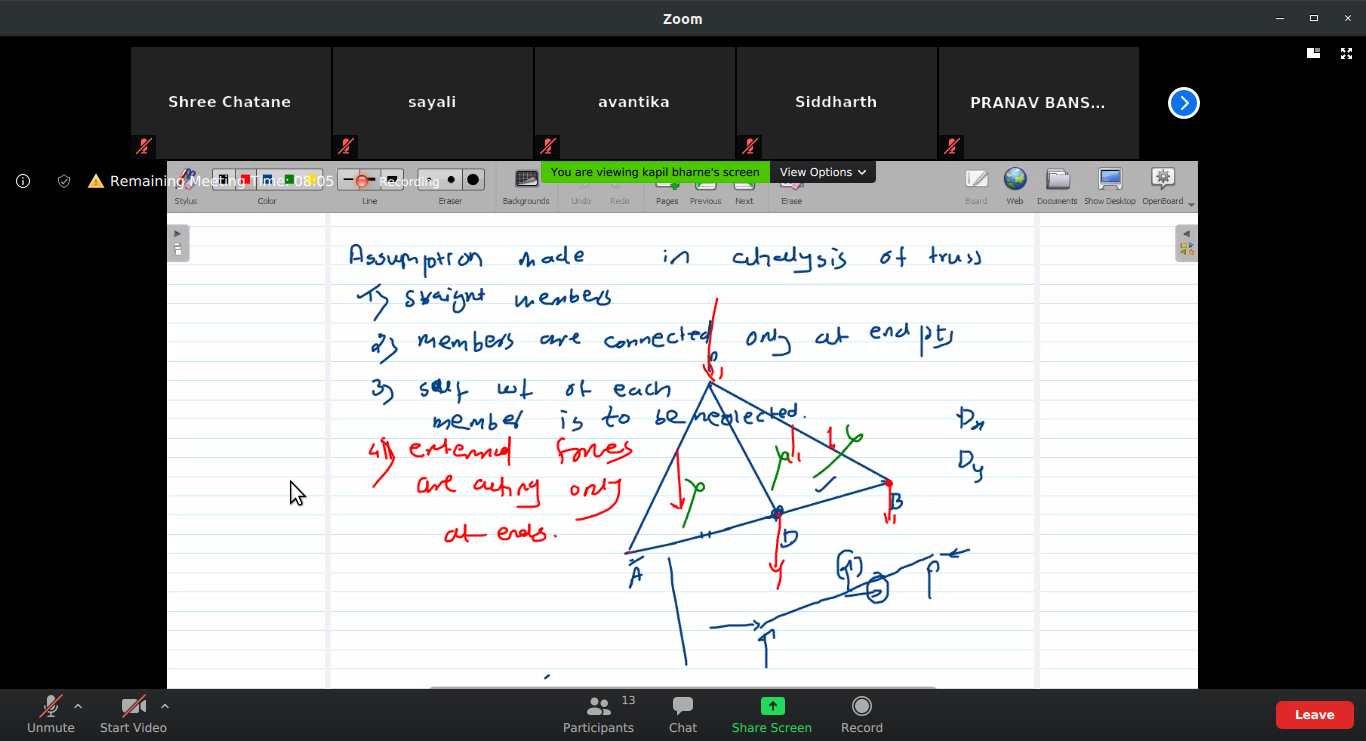 Zoom
Shree Chatane
sayali
avantika
Siddharth
PRANAV BANS...
Remaining Meeting Time: 08:05
Recording
You are viewing kapil bharne's screen
View Options
Stylus
Color
Line
Eraser
Backgrounds
Undo
Redo
Pages
Previous
Next
Erase
Board
Web
Documents
Show Desktop
OpenBoard
Assumption made in analysis of truss
1) straight members
2) members are connected only at end pts
3) self wt of each
member is to be neglected.
4) external forces
are acting only
at ends.
Dx
Dy
B
D
A
Unmute
Start Video
Participants
13
Chat
Share Screen
Record
Leave